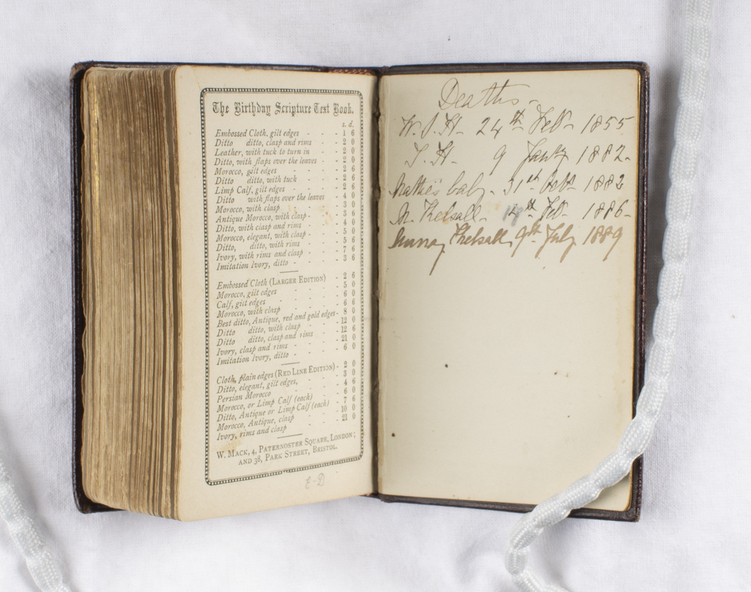 The Birthday Scripture Text Book.
s. d.
Embossed Cloth, gilt edges - - - 1 6
Ditto ditto, clasp and rims - - 2 0
Leather, with tuck to turn in - - 2 0
Ditto, with flaps over the leaves - - 2 0
Morocco, gilt edges - - - 2 6
Ditto ditto, with tuck - - - 2 6
Limp Calf, gilt edges - - - 2 6
Ditto with flaps over the leaves - 4 0
Morocco, with clasp - - - 3 0
Antique Morocco, with clasp - - 4 0
Ditto, with clasp and rims - - - 4 0
Morocco, elegant, with clasp - - 5 0
Ditto, ditto, with rims - - 5 6
Ivory, with rims and clasp - - - 7 6
Imitation Ivory, ditto - - - 3 6
Embossed Cloth (Larger Edition) - 2 6
Morocco, gilt edges - - - 5 0
Calf, gilt edges - - - 6 0
Morocco, with clasp - - - 6 6
Best ditto, Antique, red and gold edges - 8 0
Ditto ditto, with clasp - - - 12 0
Ditto ditto, clasp and rims - - 12 6
Ivory, clasp and rims - - - 21 0
Imitation Ivory, ditto - - - 6 0
Cloth, plain edges (Red Line Edition) - 2 0
Ditto, elegant, gilt edges, - - 3 0
Persian Morocco - - - 4 6
Morocco, or Limp Calf (each) - - 6 0
Ditto, Antique or Limp Calf (each) - 7 6
Morocco, Antique, clasp - - 10 0
Ivory, rims and clasp - - - 21 0
W. Mack, 4, Paternoster Square, London;
and 38, Park Street, Bristol.
Deaths -
24th Feb - 1855
9 Jany 1882 -
baby - 31st Octr 1882
Kelsall - Feb - 1886 -
Kelsall, 9th July 1889